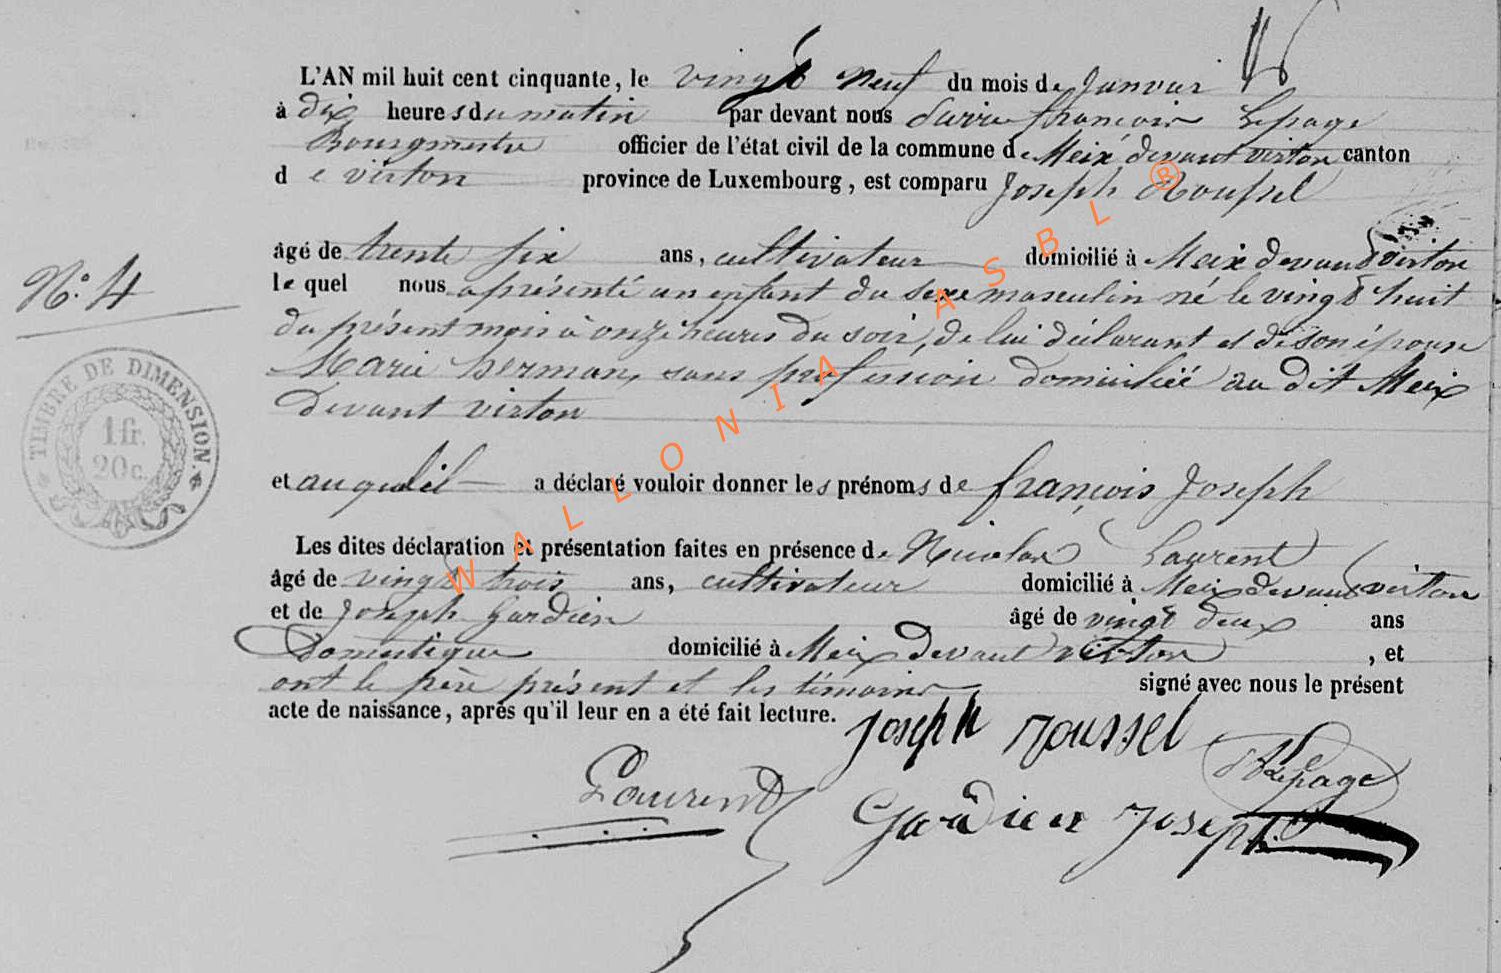 L'AN mil huit cent cinquante, le vingt neuf du mois de Janvier
à dix heures du matin par devant nous Pierre françois Lepage
Bourgmestre officier de l'état civil de la commune de Meix devant virton canton
de virton province de Luxembourg, est comparu Joseph Roussel
âgé de trente six ans, cultivateur domicilié à Meix devant virton
le quel nous a présenté un enfant du sexe masculin né le vingt huit
du présent mois à onze heures du soir, de lui déclarant et de son épouse
Marie herman, sans profession domiciliée au dit Meix
devant virton
N° 4
TIMBRE DE DIMENSION.
1 fr.
20 c.
et auquel il a déclaré vouloir donner les prénoms de françois Joseph
Les dites déclaration et présentation faites en présence de Nicolas Laurent
âgé de vingt trois ans, cultivateur domicilié à Meix devant virton
et de Joseph Gardien âgé de vingt deux ans
Domestique domicilié à Meix devant virton, et
ont le père présent et les témoins signé avec nous le présent
acte de naissance, après qu'il leur en a été fait lecture.
Joseph roussel
Lepage
Laurent
Gardien Joseph
WALLONIA ASBL ®